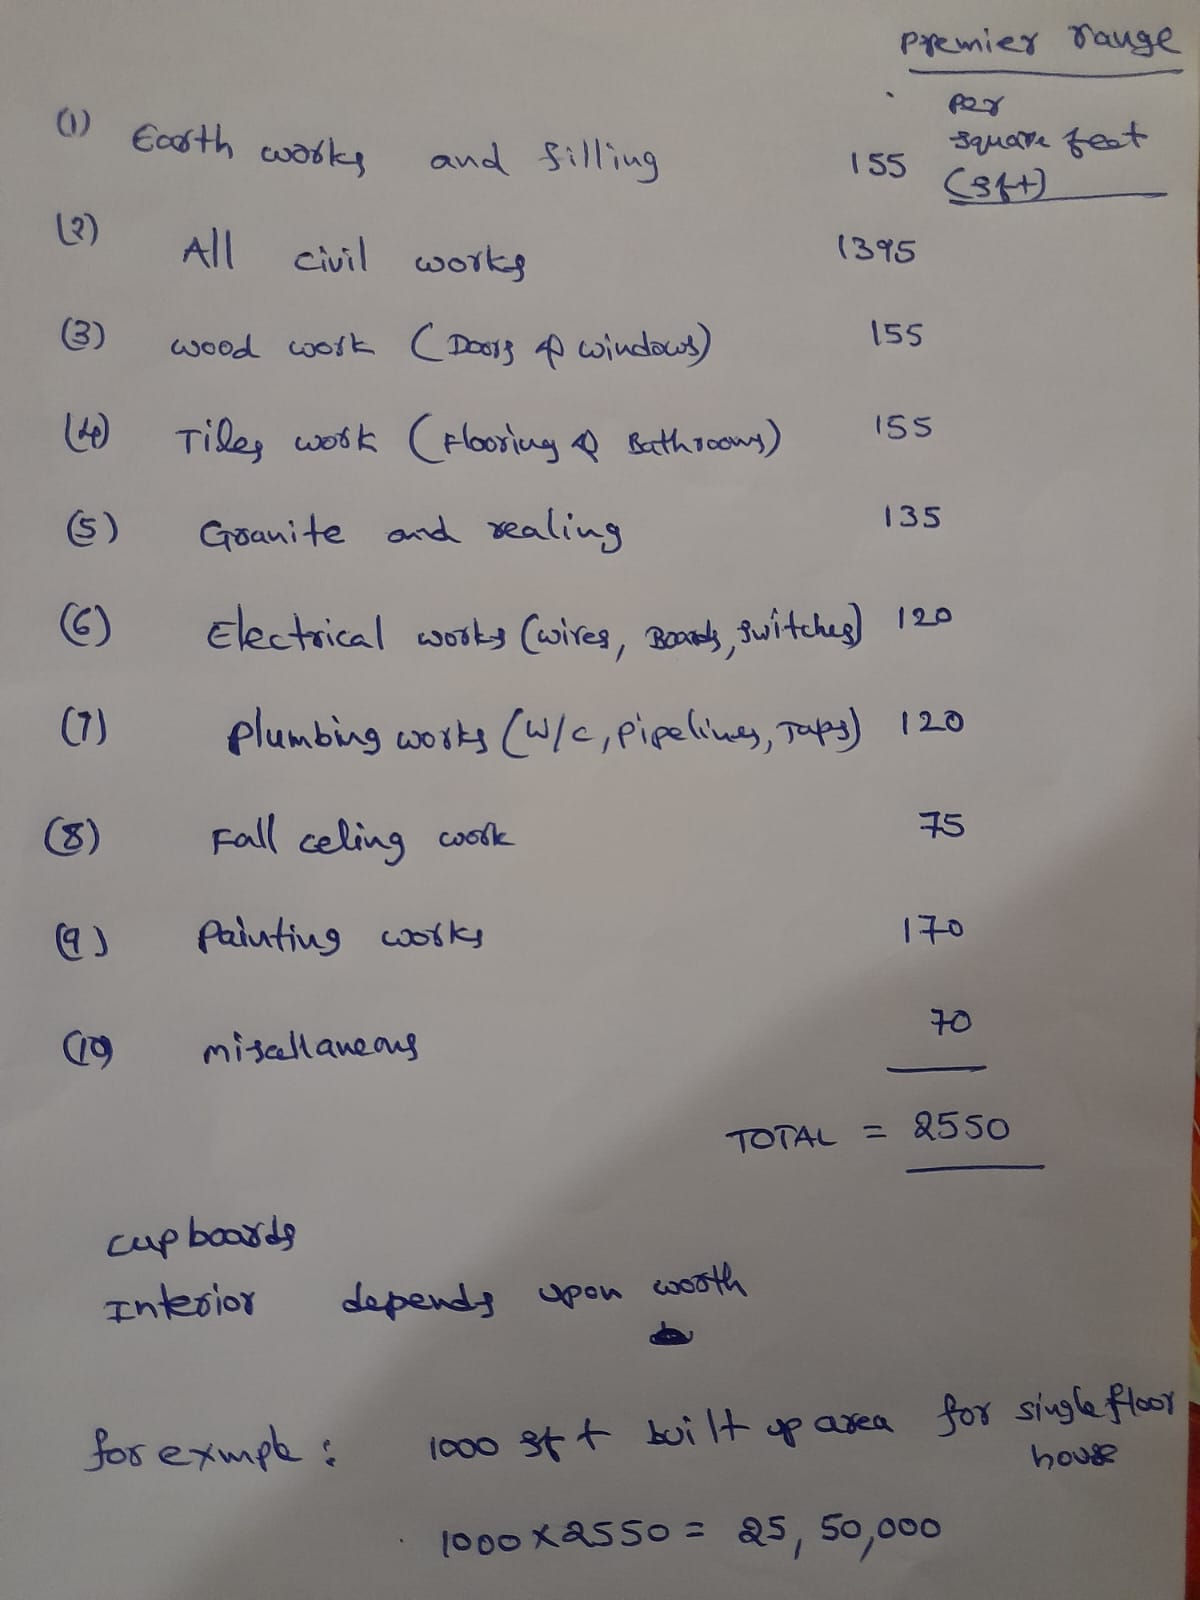 Premier range
per
square feet
(sft)
(1) Earth works and filling 155
(2) All civil works 1395
(3) wood work (Doors & windows) 155
(4) Tiles work (Flooring & Bathrooms) 155
(5) Granite and realing 135
(6) Electrical works (wires, Boards, switches) 120
(7) plumbing works (W/c, pipelines, Taps) 120
(8) Fall celing work 75
(9) Painting works 170
(10) miscellaneous 70
TOTAL = 2550
cupboards
Interior depends upon worth
for exmple : 1000 sft built up area for single floor
house
1000 x 2550 = 25,50,000